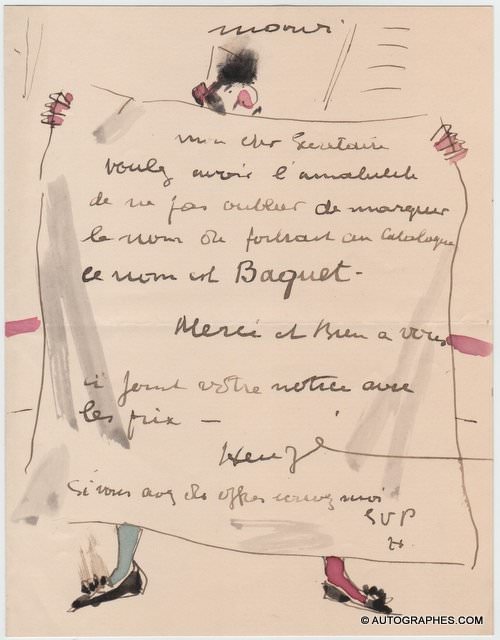 mon cher Secretaire
voulez avoir l'amabilité
de ne pas oublier de marquer
le nom du portrait au Catalogue
ce nom est Baquet -
Merci et Bien a vous
ci joint votre notice avec
les prix -
Si vous avez des offres ecrivez moi
SVP
© AUTOGRAPHES.COM